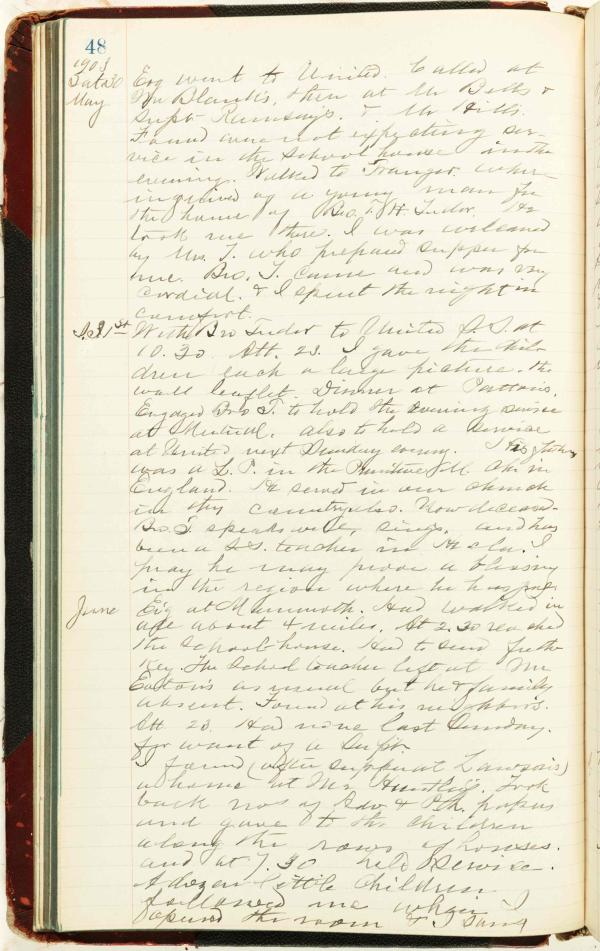 48
1903
Sat 30 Esq went to United. Called at
May Mr Blank's, then at Mr Betts &
Supt Ramsay's. & Mr Hills.
Found were not expecting ser-
vice in the School house in the
evening. Walked to Trauger, where
inquired of a young man for
the home of Bro. T. W. Tudor. He
took me there. I was welcomed
by Mrs. T. who prepared supper for
me. Bro. T. came and was very
cordial. & I spent the night in
comfort.
S. 31st With Bro Tudor to United S. S. at
10.30. Att. 23. I gave the chil-
dren each a large picture. the
wall leaflet. Dinner at
Engaged Bro T. to hold the evening service
at Mutual. also to hold a service
at United next Sunday evening. His father
was a L. P. in the Primitive M. Ch. in
England. He served in our church
in this country also. Now deceased.
Bro. T. speaks well, sings, and has
been a S. S. teacher in I
pray he may prove a blessing
in the region where he
June at Mammoth. Had walked in
all about 4 miles. At 2.30 reached
the School house. Had to send for the
Key. The School teacher left at Mr
Eaton's as usual but he & family
absent. Found at his neighbor's.
Att. 23. Had none last Sunday.
for want of a Supt.
I found (after supper at Lawson's)
a home at Mr. Huntley's. Took
back nos of Adv & Pth. papers
and gave to the children
along the rows of houses.
and at 7.30 held Service.
A dozen little children
followed me when I
opened the room & I sang